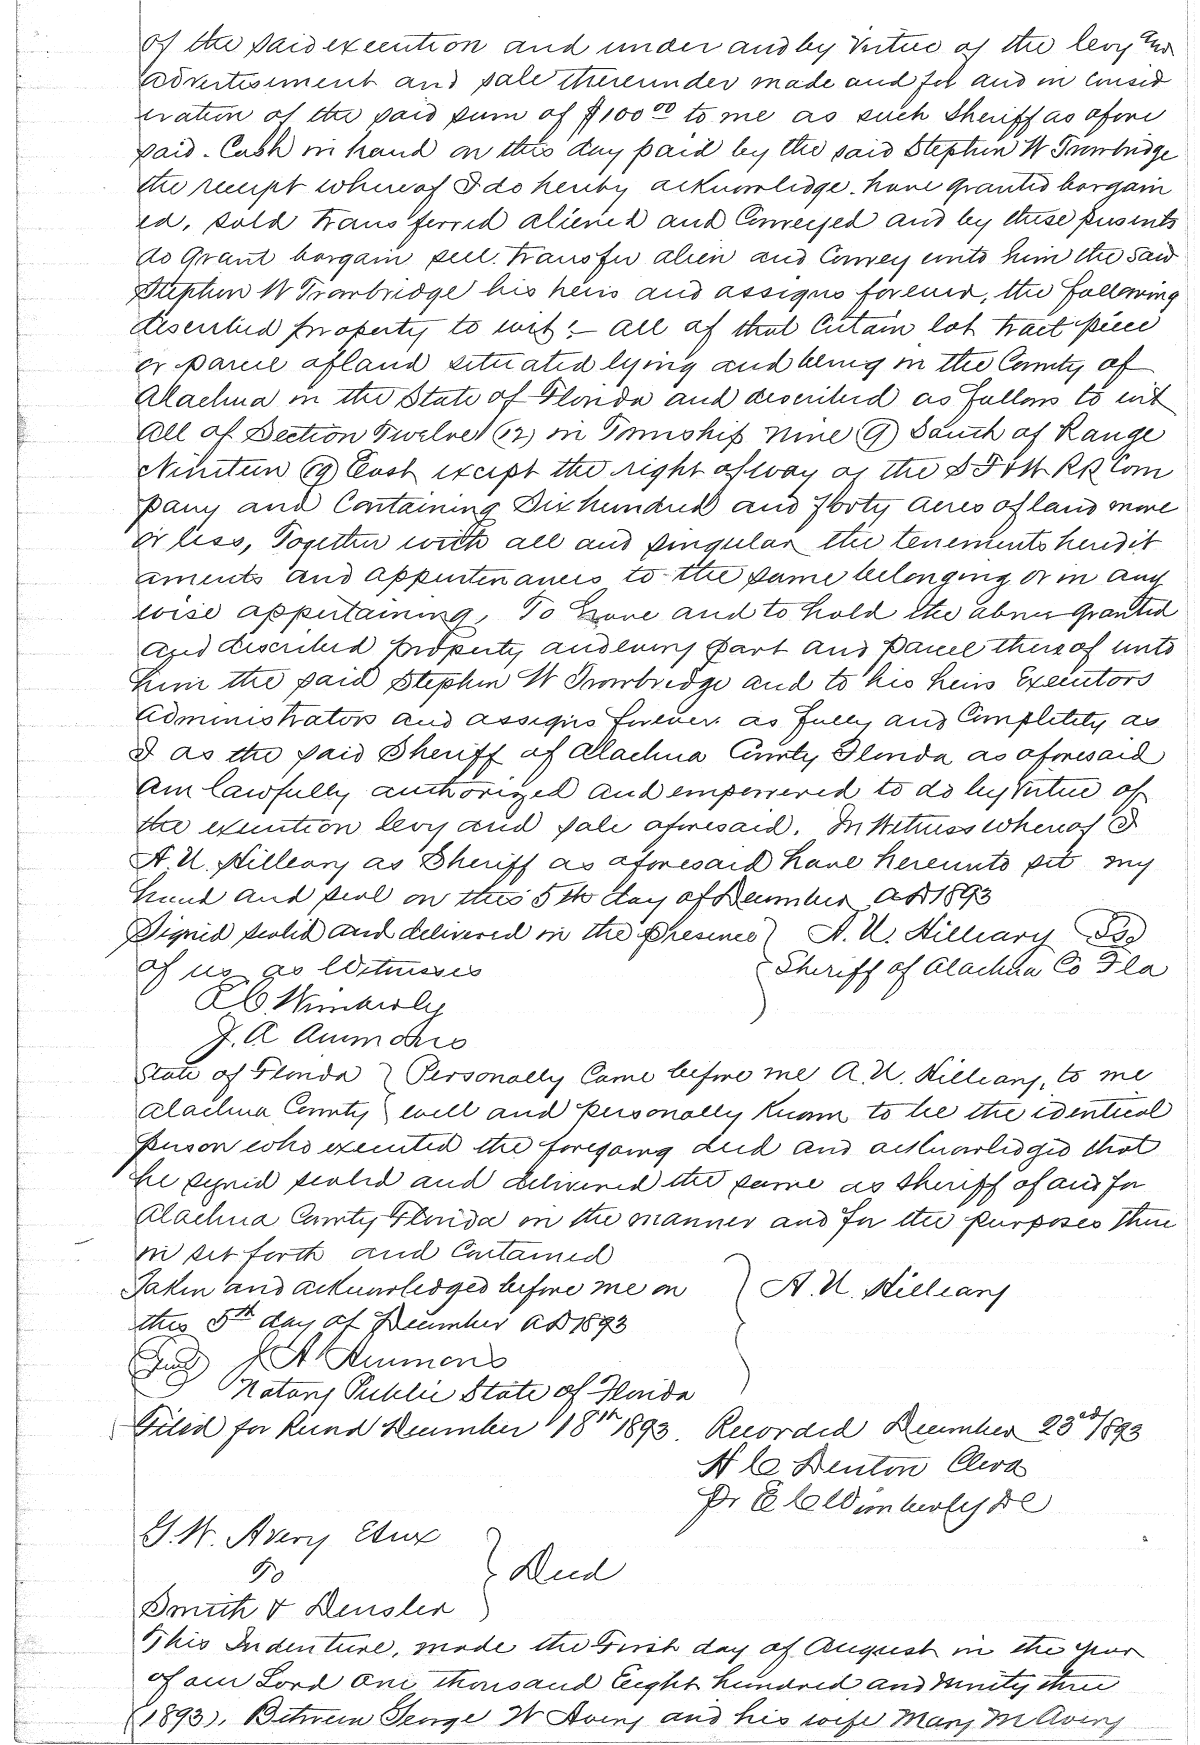 of the said execution and under and by virtue of the levy and
advertisement and sale thereunder made and for and in consid
eration of the said sum of $100 00 to me as such Sheriff as afore
said. Cash in hand on this day paid by the said Stephen W Trowbridge
the receipt whereof I do hereby acknowledge. have granted bargain
ed, sold transferred aliened and Conveyed and by these presents
do Grant bargain sell. transfer alien and Convey unto him the said
Stephen W Trowbridge his heirs and assigns forever, the following
described property to wit:- all of that Certain lot tract piece
or parcel of land situated lying and being in the County of
Alachua in the State of Florida and described as follows to wit
All of Section Twelve (12) in Township nine (9) South of Range
Nineteen (19) East except the right of way of the S F & W RR Com
pany and Containing Six hundred and forty acres of land more
or less, Together with all and singular the tenements heredit
aments and appurtenances to the same belonging or in any
wise appertaining, To have and to hold the above granted
and described property and every part and parcel thereof unto
him the said Stephen W Trowbridge and to his heirs Executors
Administrators and assigns forever as fully and Completely as
I as the said Sheriff of Alachua County Florida as aforesaid
am lawfully authorized and empowered to do by virtue of
the execution levy and sale aforesaid. In Witness whereof I
A. U. Hilleary as Sheriff as aforesaid have hereunto set my
hand and seal on this 5th day of December AD 1893
Signed sealed and delivered in the presence } A. U. Hilleary
of us as Witnesses } Sheriff of Alachua Co Fla
Wimberly
J. A Ammons
State of Florida } Personally Came before me A. U. Hilleary, to me
Alachua County } well and personally Known to be the identical
person who executed the foregoing deed and acknowledged that
he signed sealed and delivered the same as Sheriff of and for
Alachua County Florida in the manner and for the purposes there
in set forth and Contained
Taken and acknowledged before me on } A. U. Hilleary
this 5th day of December AD 1893
J A Ammons
Notary Public State of Florida
Filed for Record December 18th 1893. Recorded December 23rd 1893
H C Denton Clerk
Pr E C Wimberly DC
G. W. Avery Etux
To } Deed
Smith & Densler
This Indenture, made the First day of August in the year
of our Lord one thousand Eight hundred and Ninety three
(1893), Between George W Avery and his wife Mary M Avery